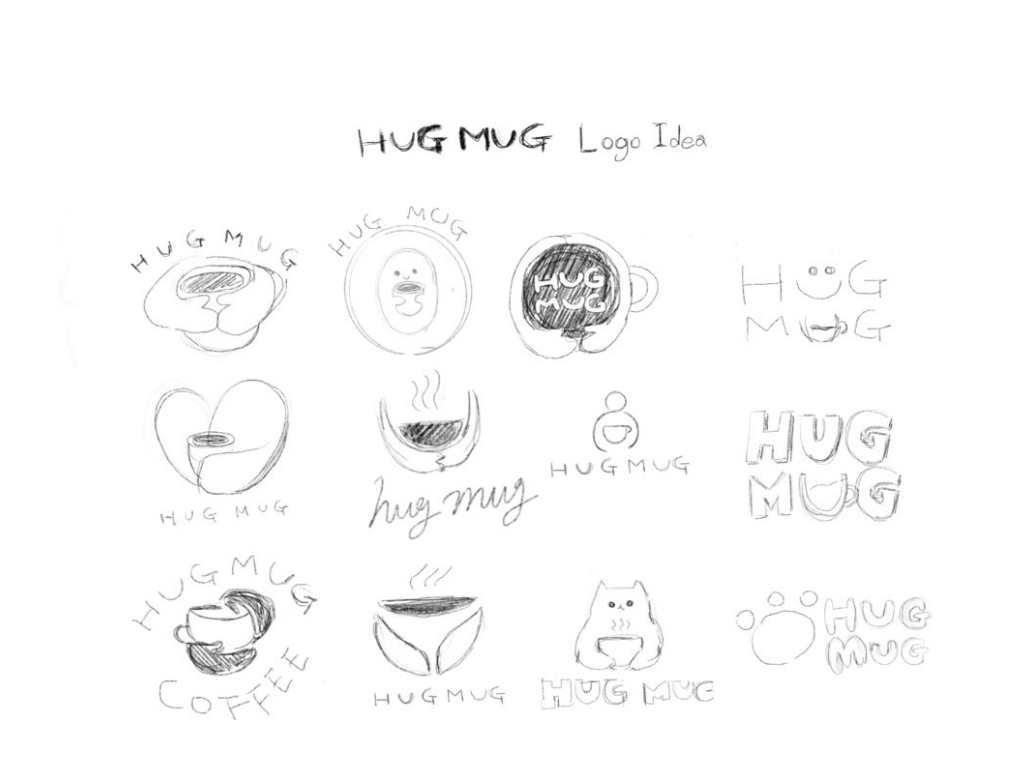 HUG MUG Logo Idea
HUG MUG
HUG MUG
HUG
MUG
HUG
MUG
HUG MUG
hug mug
HUG MUG
HUG
MUG
HUG MUG
COFFEE
HUG MUG
HUG MUG
HUG
MUG